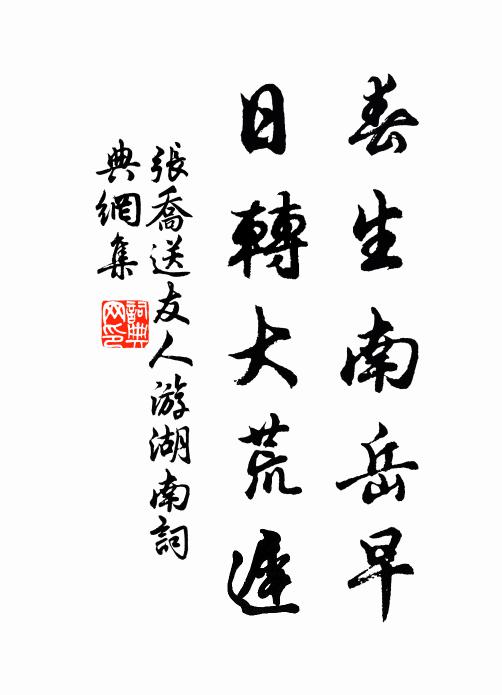 春生南岳早
日轉大荒遲
張喬送友人游湖南詞
典網集
詞典
网印